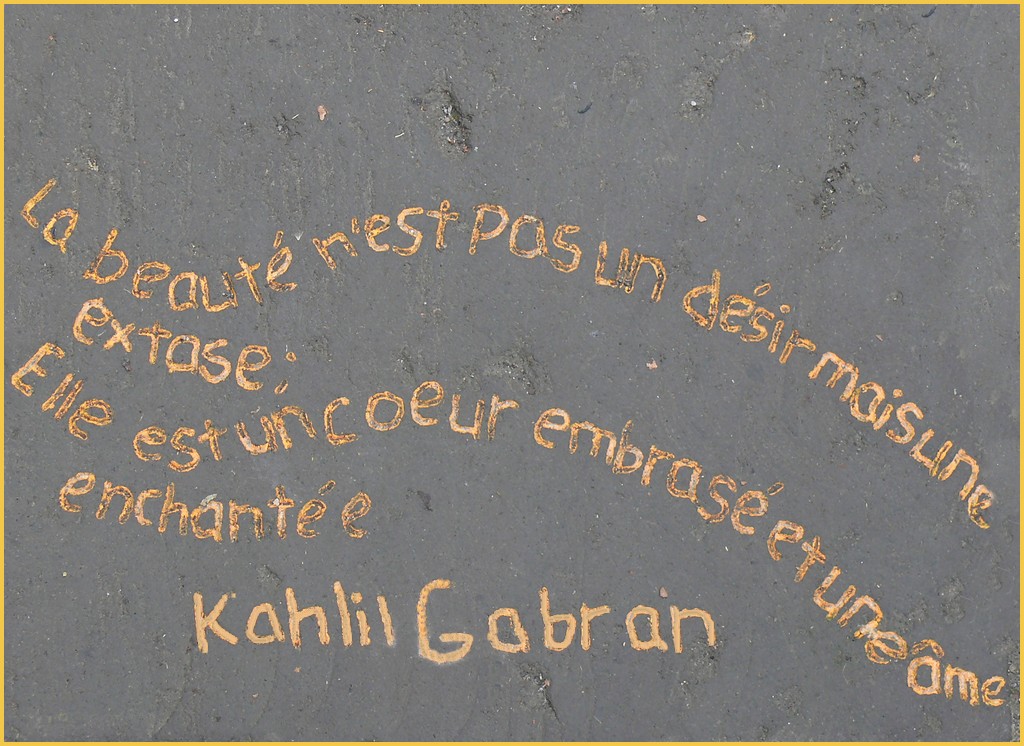 La beauté n'est pas un désir mais une
extase.
Elle est un coeur embrasé et une âme
enchantée
Kahlil Gabran